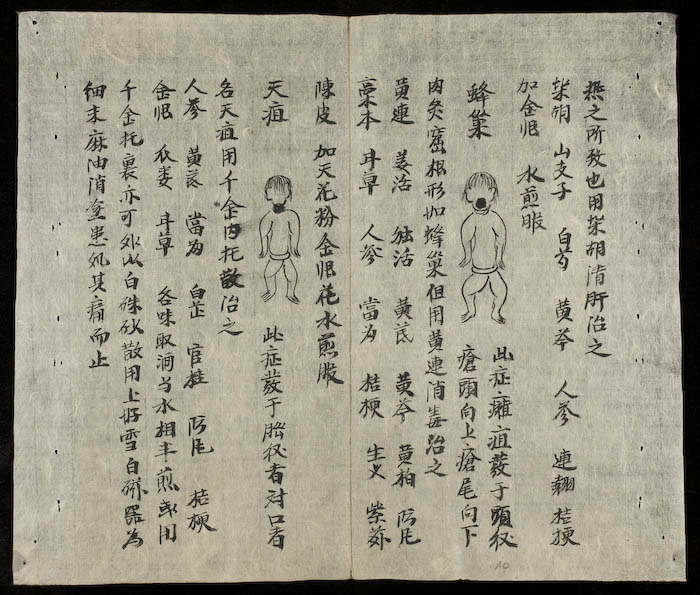 熱之所致也用柴胡清肝治之
柴胡 山支子 白芍 黄芩 人參 連翹 桔梗
加金艮 水煎服
蜂巢
此症癰疽發于頭後
瘡頭向上瘡尾向下
肉灸窟根形如蜂巢但用黄連消毒治之
黄連 羌活 独活 黄芪 黄芩 黄柏 防风
藁本 甘草 人參 當为 桔梗 紫蘇
陳皮 加天花粉金艮花水煎服
天疽
此症發于腦後者对口者
名天疽用千金内托散治之
人參 黄芪 當为 白芷 官桂 防风 桔梗
金艮 瓜蒌 甘草 各味取酒与水相半煎或用
千金托裏亦可外以白硃砂散用上好雪白磁器為
細末麻油消塗患処其痛而止
10